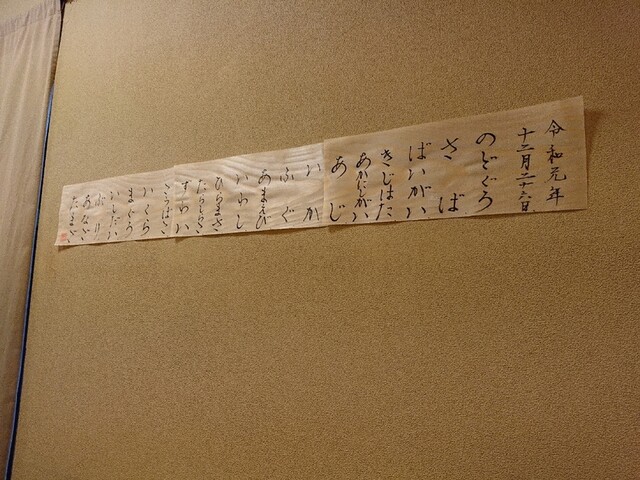 令和元年
十二月二十六日
のどぐろ
さば
ばいがい
きじはた
あかにしがい
あじ
いか
ふぐ
あまえび
いわし
ひらまさ
ずわい
こうばこ
いくら
まぐろ
いしだい
ぶり
あなご
たまご